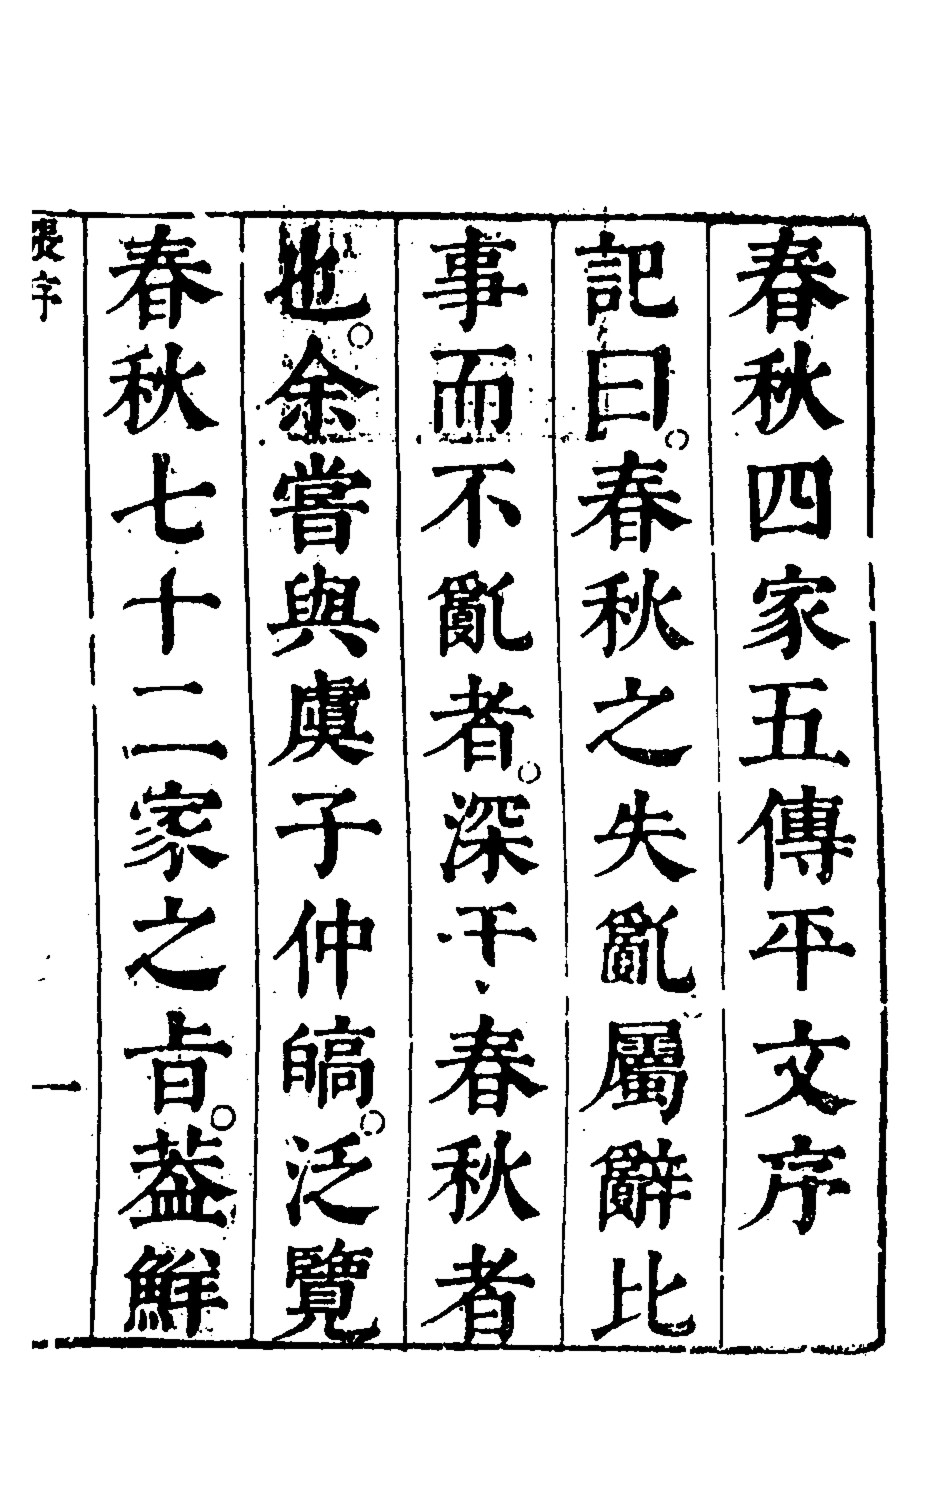 春秋四家五傳平文序
記曰○春秋之失亂屬辭比
事而不亂者○深于春秋者
也○余嘗與虞子仲皜○泛覽
春秋七十二家之㫖○葢鮮
張序
一